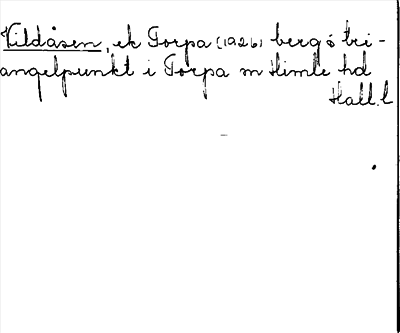 Kildåsen, ek Torpa (1926) berg ö tri-
angelpunkt i Torpa sn Himle hd
Hall. l